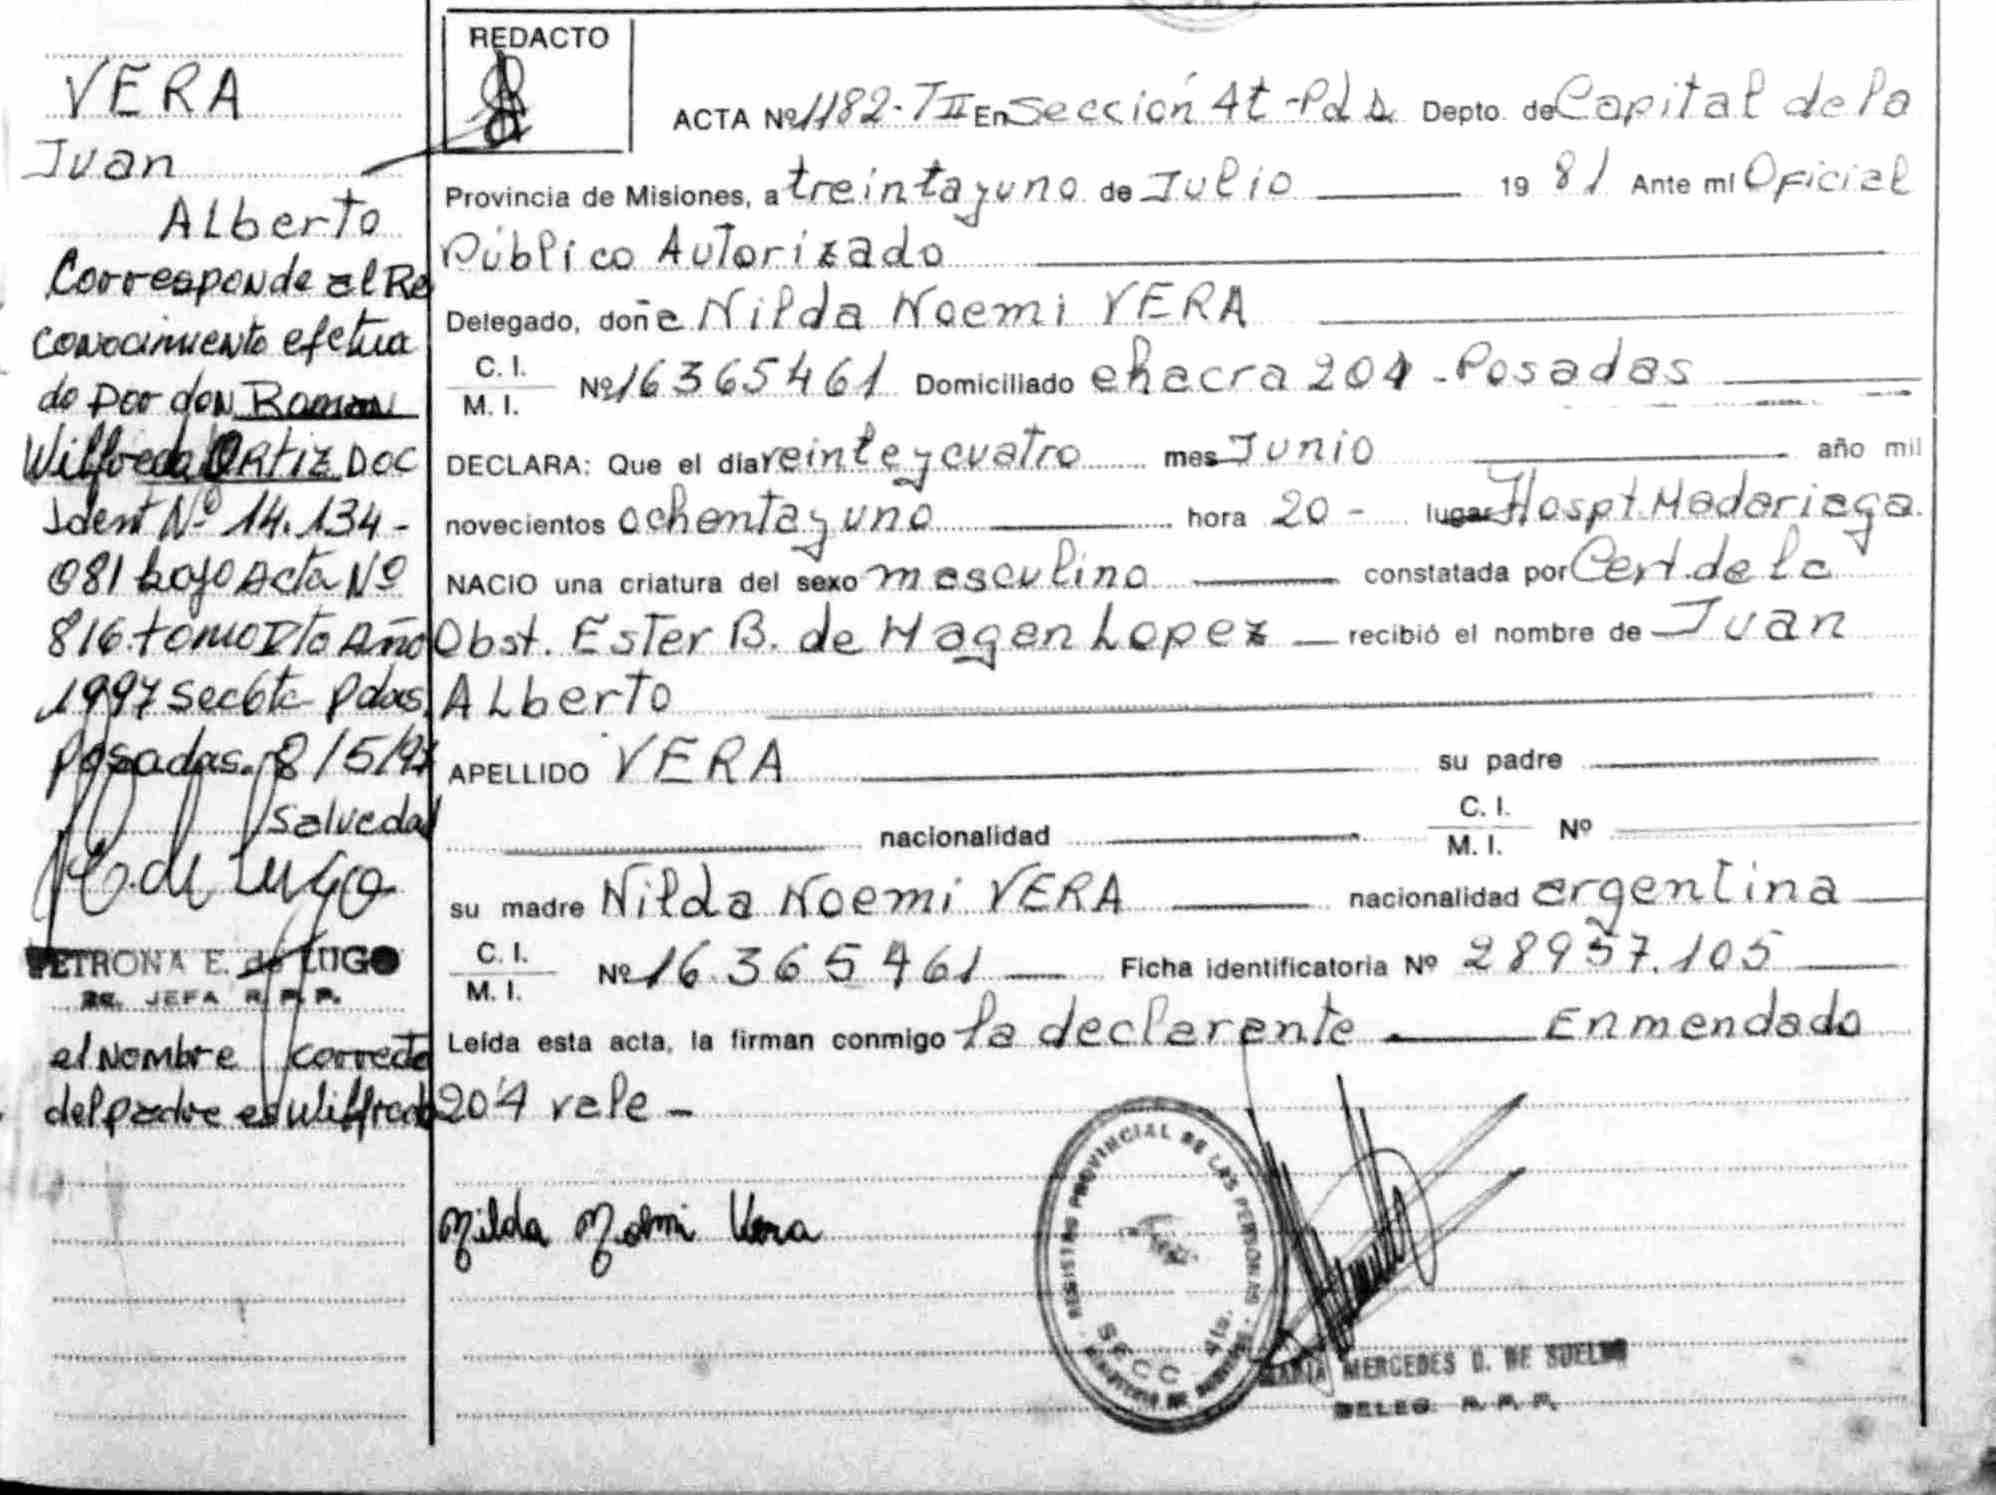 VERA
Juan
ALberto
Corresponde al Re
conocimiento efetua
do por don Roman
Wilfredo ORTIZ DOC
Ident Nº 14.134-
081 bajo Acta Nº
816 tomo Año
1997 Sec 6ta Pdas.
Posadas. 8/5/97
Salvedad
PETRONA E. de LUGO
JEFA R. P. P.
el Nombre correcto
del padre es Wilfredo
REDACTO
ACTA Nº 1182-TII En Sección 4t-Pds Depto. de Capital de la
Provincia de Misiones, a treinta y uno de Julio 19 81 Ante mi Oficial
Público Autorizado
Delegado, doña Nilda Noemi VERA
C. I.
M. I. Nº 16365461 Domiciliado chacra 204 - Posadas
DECLARA: Que el dia veinte y cuatro mes Junio año mil
novecientos ochenta y uno hora 20 - lugar Hospt. Madariaga
NACIO una criatura del sexo masculino constatada por Cert. de la
Obst. Ester B. de Hagen Lopez recibió el nombre de Juan
ALberto
APELLIDO VERA su padre
nacionalidad C. I.
M. I. Nº
su madre Nilda Noemi VERA nacionalidad argentina
C. I.
M. I. Nº 16.365461 Ficha identificatoria Nº 28957.105
Leída esta acta, la firman conmigo la declarante Enmendado
204 vale -
Nilda Noemi Vera
REGISTRO PROVINCIAL DE LAS PERSONAS
SECC 4ta.
MARIA MERCEDES D. DE SUELDO
DELEG. R. P. P.